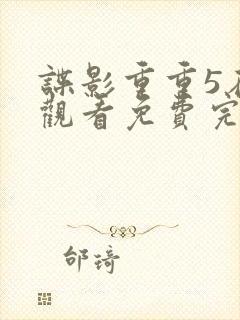 諜影重重5在
觀看免費完
邰琦